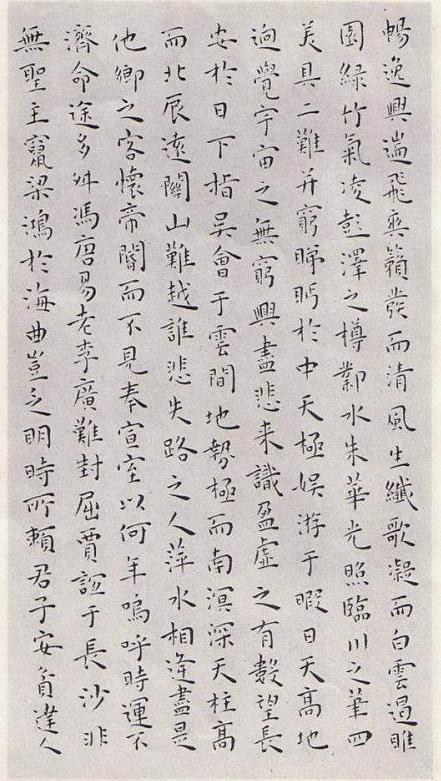 暢逸興遄飛爽籟發而清風生纖歌凝而白雲遏睢
園綠竹氣凌彭澤之樽鄴水朱華光照臨川之筆四
美具二難并窮睇眄於中天極娛游于暇日天高地
迥覺宇宙之無窮興盡悲来識盈虛之有數望長
安於日下指吳會于雲間地勢極而南溟深天柱高
而北辰遠關山難越誰悲失路之人萍水相逢盡是
他鄉之客懷帝閽而不見奉宣室以何年嗚呼時運不
濟命途多舛馮唐易老李廣難封屈賈誼于長沙非
無聖主竄梁鴻於海曲豈乏明時所賴君子安貧達人